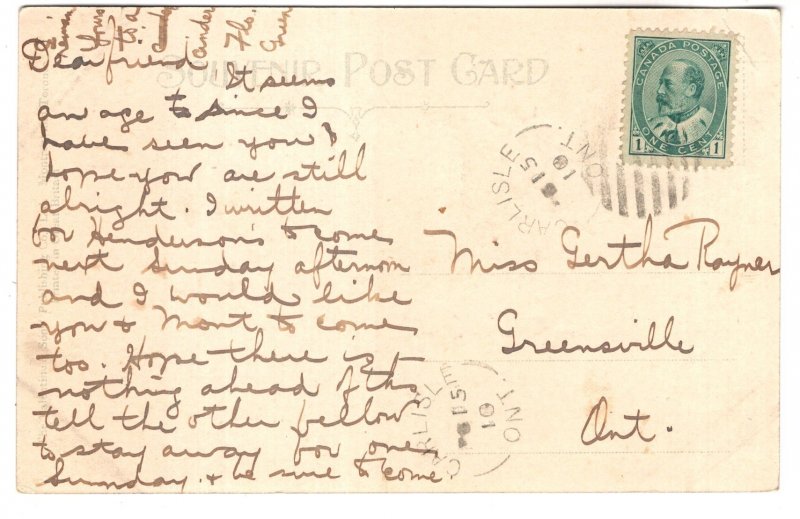 Dear friend
SOUVENIR POST CARD
It seems
an age to since I
have seen you I
hope you are still
alright. I written
for Henderson's to come
next Sunday afternoon
and I would like
you & Mont to come
too. Hope there is
nothing ahead of this
tell the other fellow
to stay away for one
Sunday. & be sure to come
CANADA POSTAGE
1 ONE CENT 1
CARLISLE
15
10
ONT.
Miss Gertha Rayner
Greensville
Ont.
CARLISLE
15
10
ONT.